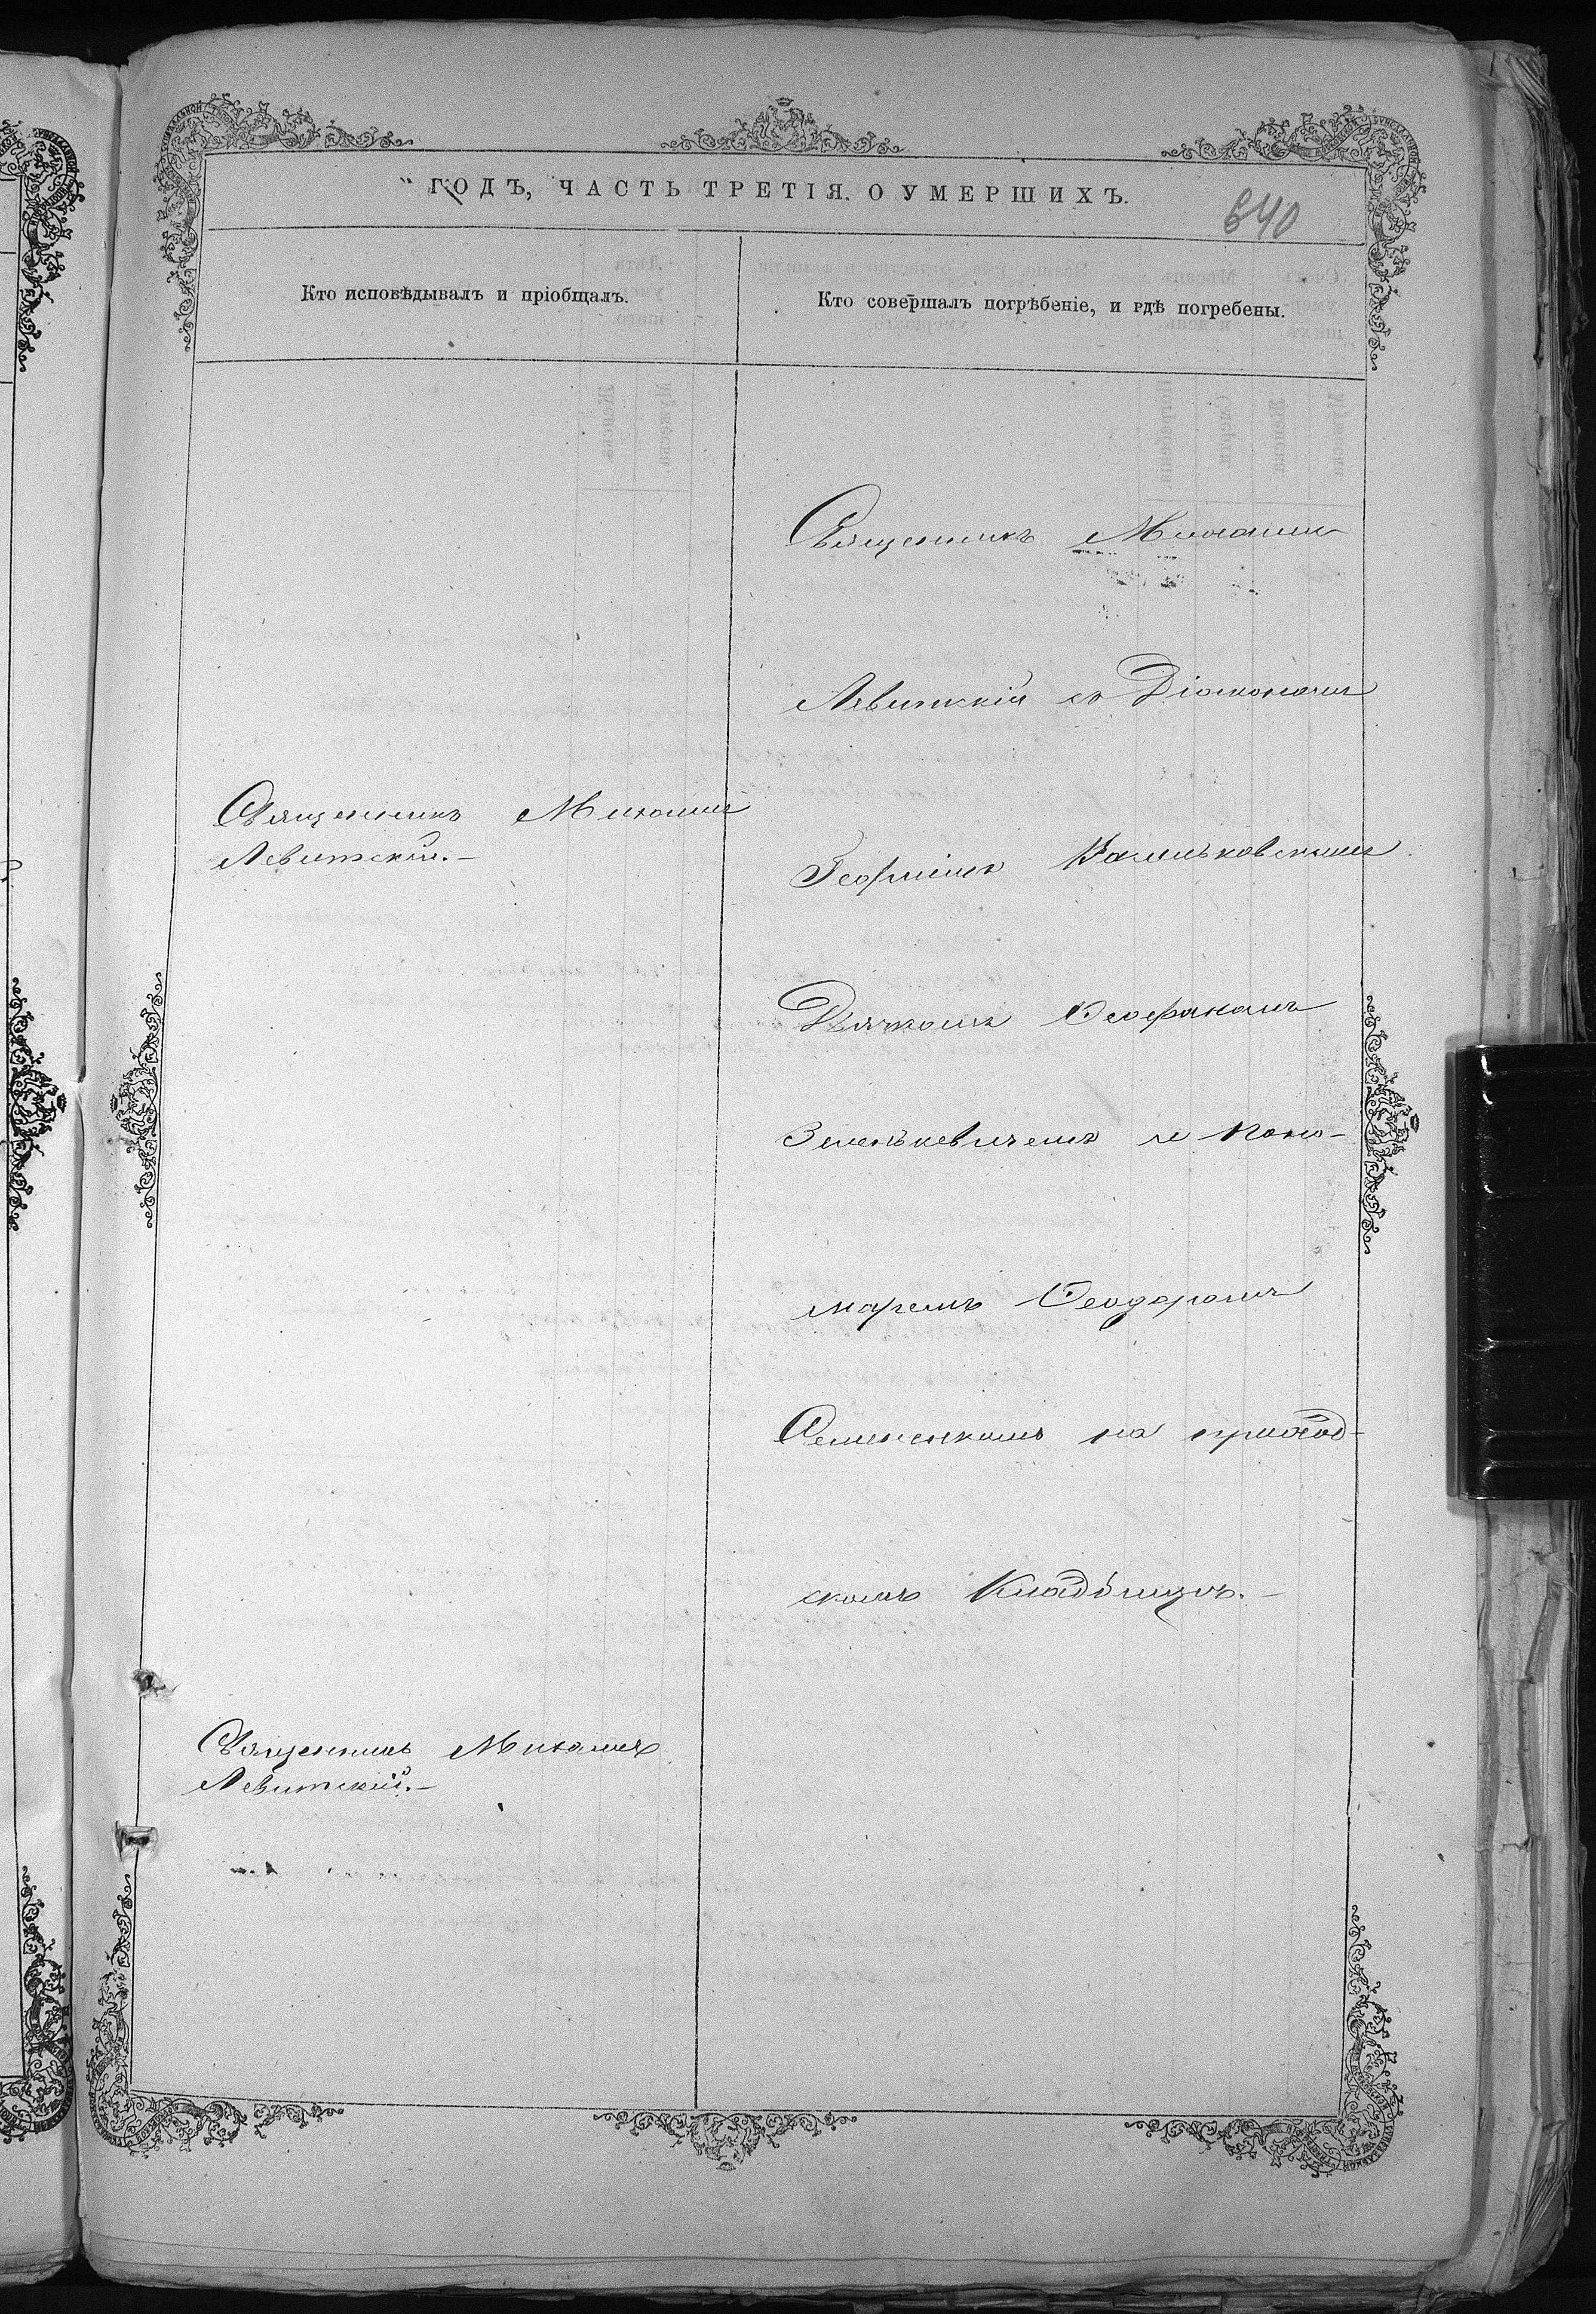 ГОДЪ, ЧАСТЬ ТРЕТІЯ. О УМЕРШИХЪ.
640
Кто исповѣдывалъ и пріобщалъ.
Кто совершалъ погребеніе, и гдѣ погребены.
Священникъ Михаилъ
Левитскій съ Діакономъ
Священникъ Михаилъ
Левитскій.—
Георгіемъ
Дьячкомъ Ѳеофаномъ
Зенькевичемъ и Поно-
маремъ Ѳеодоромъ
Семененкомъ на приход-
скомъ Кладбищѣ.—
Священникъ Михаилъ
Левитскій.—